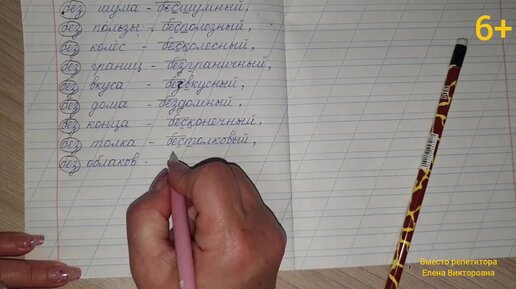 без шума - бесшумный,
без пользы - бесполезный,
без колёс - бесколесный,
без границ - безграничный,
без вкуса - безвкусный,
без дома - бездомный,
без конца - бесконечный,
без толка - бестолковый,
без облаков -
6+
Вместо репетитора
Елена Викторовна